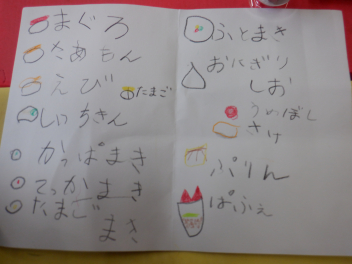 まぐろ
さあもん
えび
たまご
しいちきん
かっぱまき
てっかまき
たまご
まき
ふとまき
おにぎり
しお
うめぼし
さけ
ぷりん
ぱふぇ